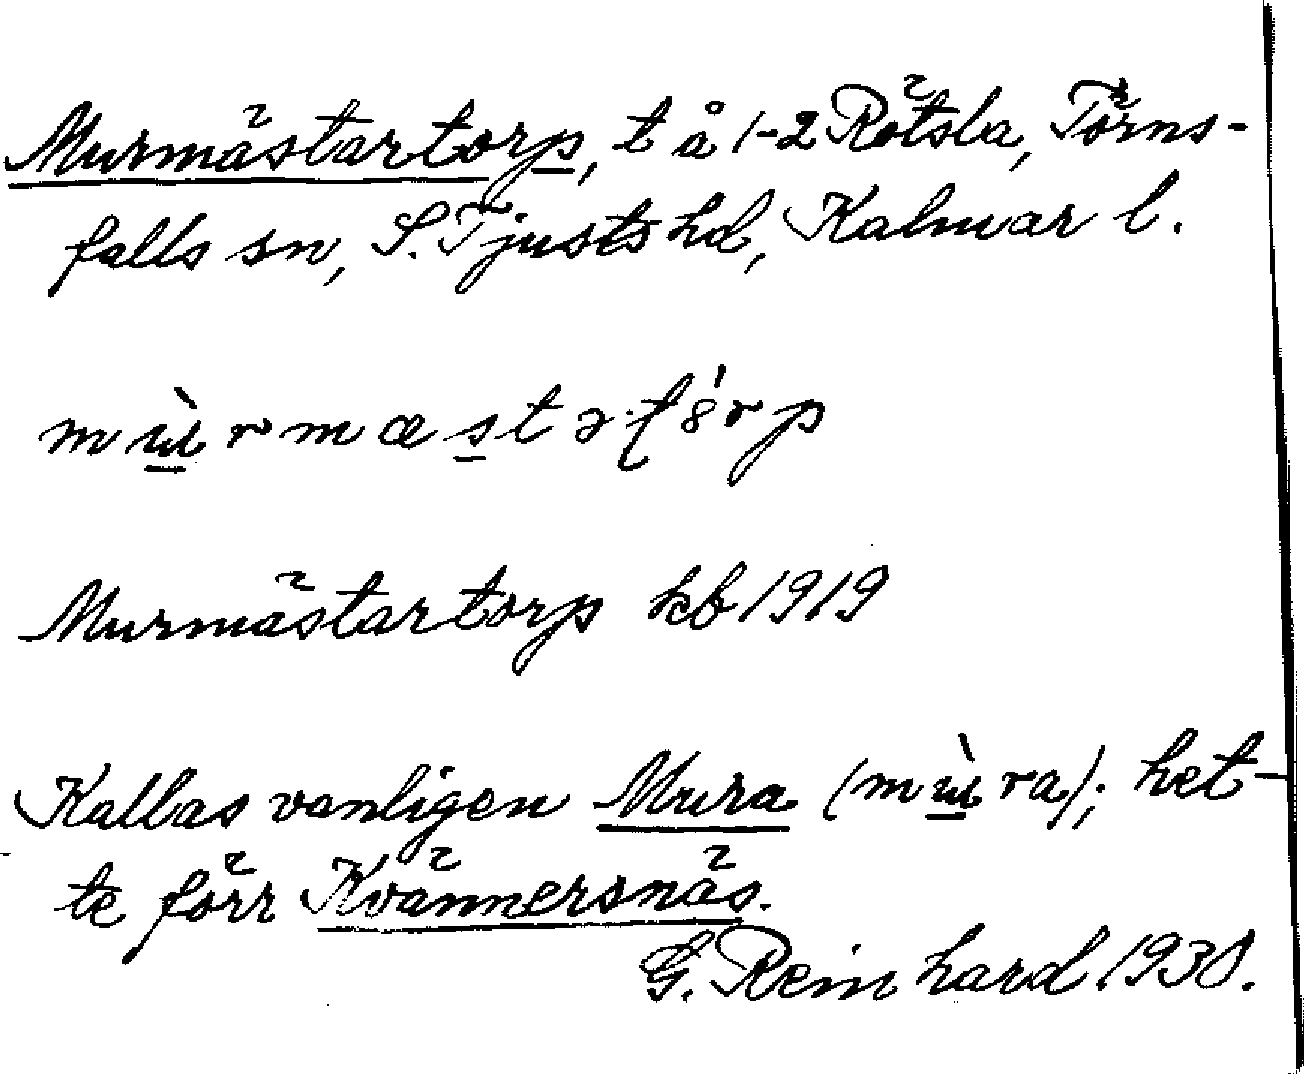 Murmästartorp, t å 1-2 Rötsla, Törns-
falls sn, S. Tjusts hd, Kalmar l.
Murmästartorp kb 1919
Kallas vanligen Mura (mɯ̀ra); het-
te förr Kvännersnäs.
G. Reinhard. 1938.